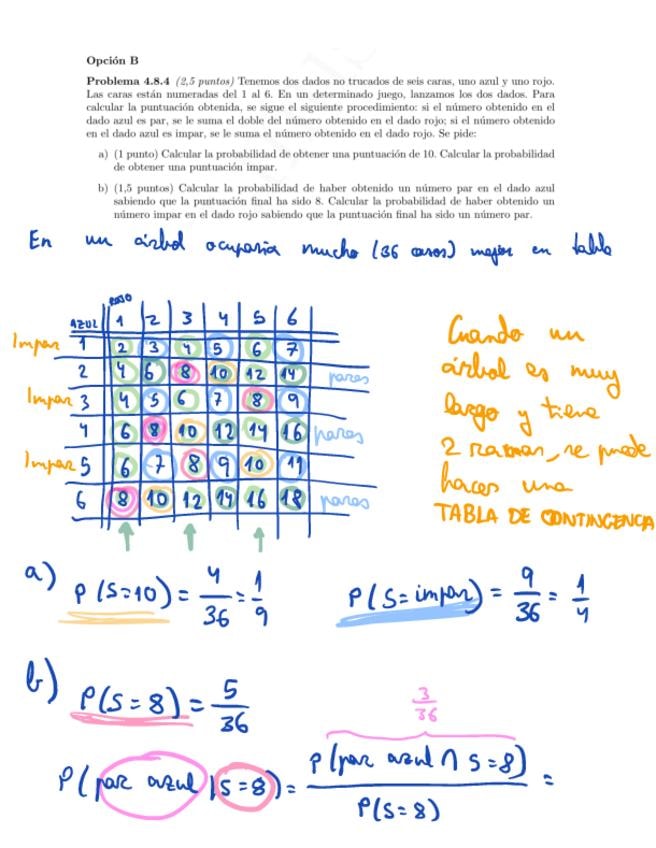 Opción B
Problema 4.8.4 (2,5 puntos) Tenemos dos dados no trucados de seis caras, uno azul y uno rojo.
Las caras están numeradas del 1 al 6. En un determinado juego, lanzamos los dos dados. Para
calcular la puntuación obtenida, se sigue el siguiente procedimiento: si el número obtenido en el
dado azul es par, se le suma el doble del número obtenido en el dado rojo; si el número obtenido
en el dado azul es impar, se le suma el número obtenido en el dado rojo. Se pide:
a) (1 punto) Calcular la probabilidad de obtener una puntuación de 10. Calcular la probabilidad
de obtener una puntuación impar.
b) (1,5 puntos) Calcular la probabilidad de haber obtenido un número par en el dado azul
sabiendo que la puntuación final ha sido 8. Calcular la probabilidad de haber obtenido un
número impar en el dado rojo sabiendo que la puntuación final ha sido un número par.
En un árbol ocuparia mucho (36 casos) mejor en tabla
ROJO
AZUL 1 2 3 4 5 6
Impar 1 2 3 4 5 6 7
2 4 6 8 10 12 14 pares
Impar 3 4 5 6 7 8 9
4 6 8 10 12 14 16 pares
Impar 5 6 7 8 9 10 11
6 8 10 12 14 16 18 pares
Cuando un
árbol es muy
largo y tiene
2 ramas, se puede
hacer una
TABLA DE CONTINGENCA
a) P(S=10) = 4/36 = 1/9
P(S=impar) = 9/36 = 1/4
b) P(S=8) = 5/36
3/36
P(par azul | S=8) = P(par azul ∩ S=8) / P(S=8) =